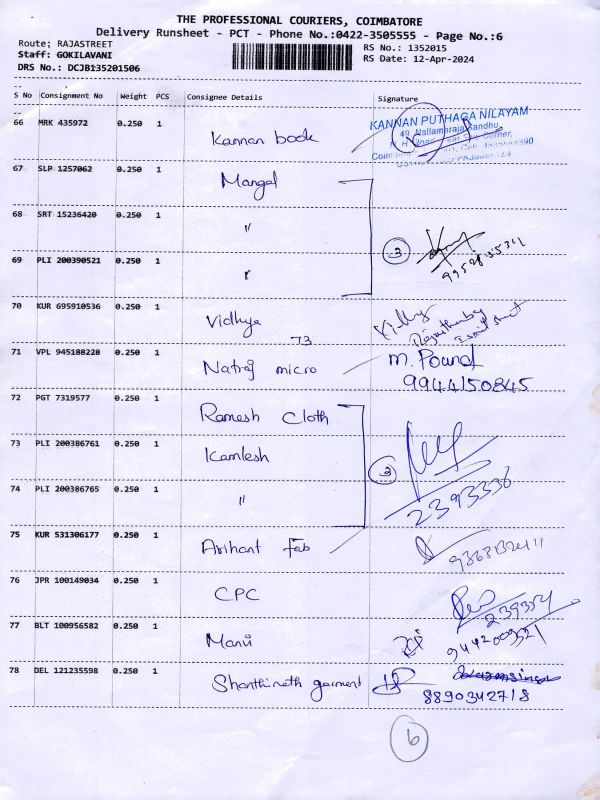 THE PROFESSIONAL COURIERS, COIMBATORE
Delivery Runsheet - PCT - Phone No.:0422-3505555 - Page No.:6
Route; RAJASTREET
RS No.: 1352015
Staff: GOKILAVANI
RS Date: 12-Apr-2024
DRS No.: DCJB135201506
S No Consignment No Weight PCS Consignee Details Signature
66 MRK 435972 0.250 1 Kannan book
KANNAN PUTHAGA NILAYAM
49, Nallamaraja Sandhu,
67 SLP 1257062 0.250 1 Mangal
68 SRT 15236420 0.250 1 "
69 PLI 200390521 0.250 1 "
3
70 KUR 695910536 0.250 1 Vidhya
73
71 VPL 945188228 0.250 1 Natraj micro
9944150845
72 PGT 7319577 0.250 1 Ramesh Cloth
73 PLI 200386761 0.250 1 Kamlesh
3
74 PLI 200386765 0.250 1 "
2393336
75 KUR 531306177 0.250 1 Arihant fab
76 JPR 100149034 0.250 1 CPC
77 BLT 100956582 0.250 1 Manii
9442009321
78 DEL 121235598 0.250 1 Shanthinath garment
8890342718
6